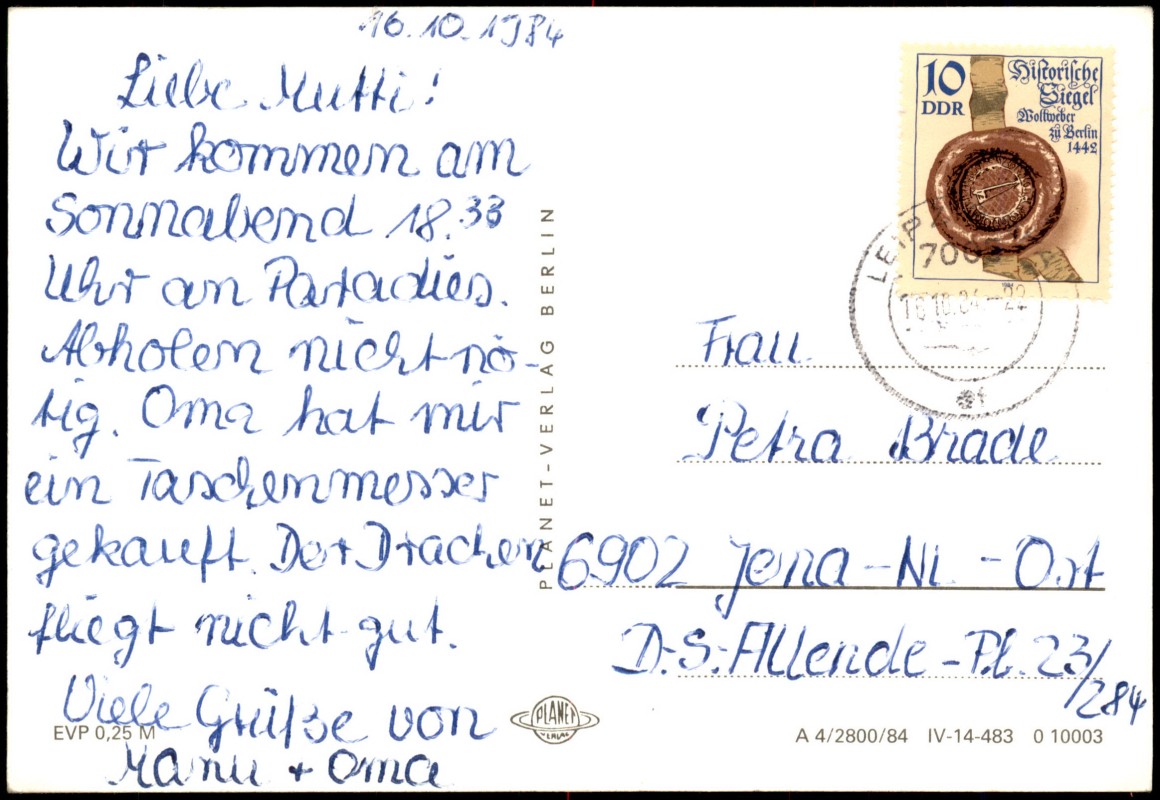 16.10.1984
Liebe Mutti!
Wir kommen am
Sonnabend 18.33
Uhr an Paradies.
Abholen nicht nö-
tig. Oma hat mir
ein Taschenmesser
gekauft. Der Drachen
fliegt nicht gut.
Viele Grüße von
Manu + Oma
EVP 0,25 M
PLANET-VERLAG BERLIN
PLANET
VERLAG
10
DDR
Historische
Siegel
Wollweber
zu Berlin
1442
Frau
Petra Brade
6902 Jena-NL-Ort
D.-S.-Allende-Pl. 23/
284
A 4/2800/84 IV-14-483 0 10003